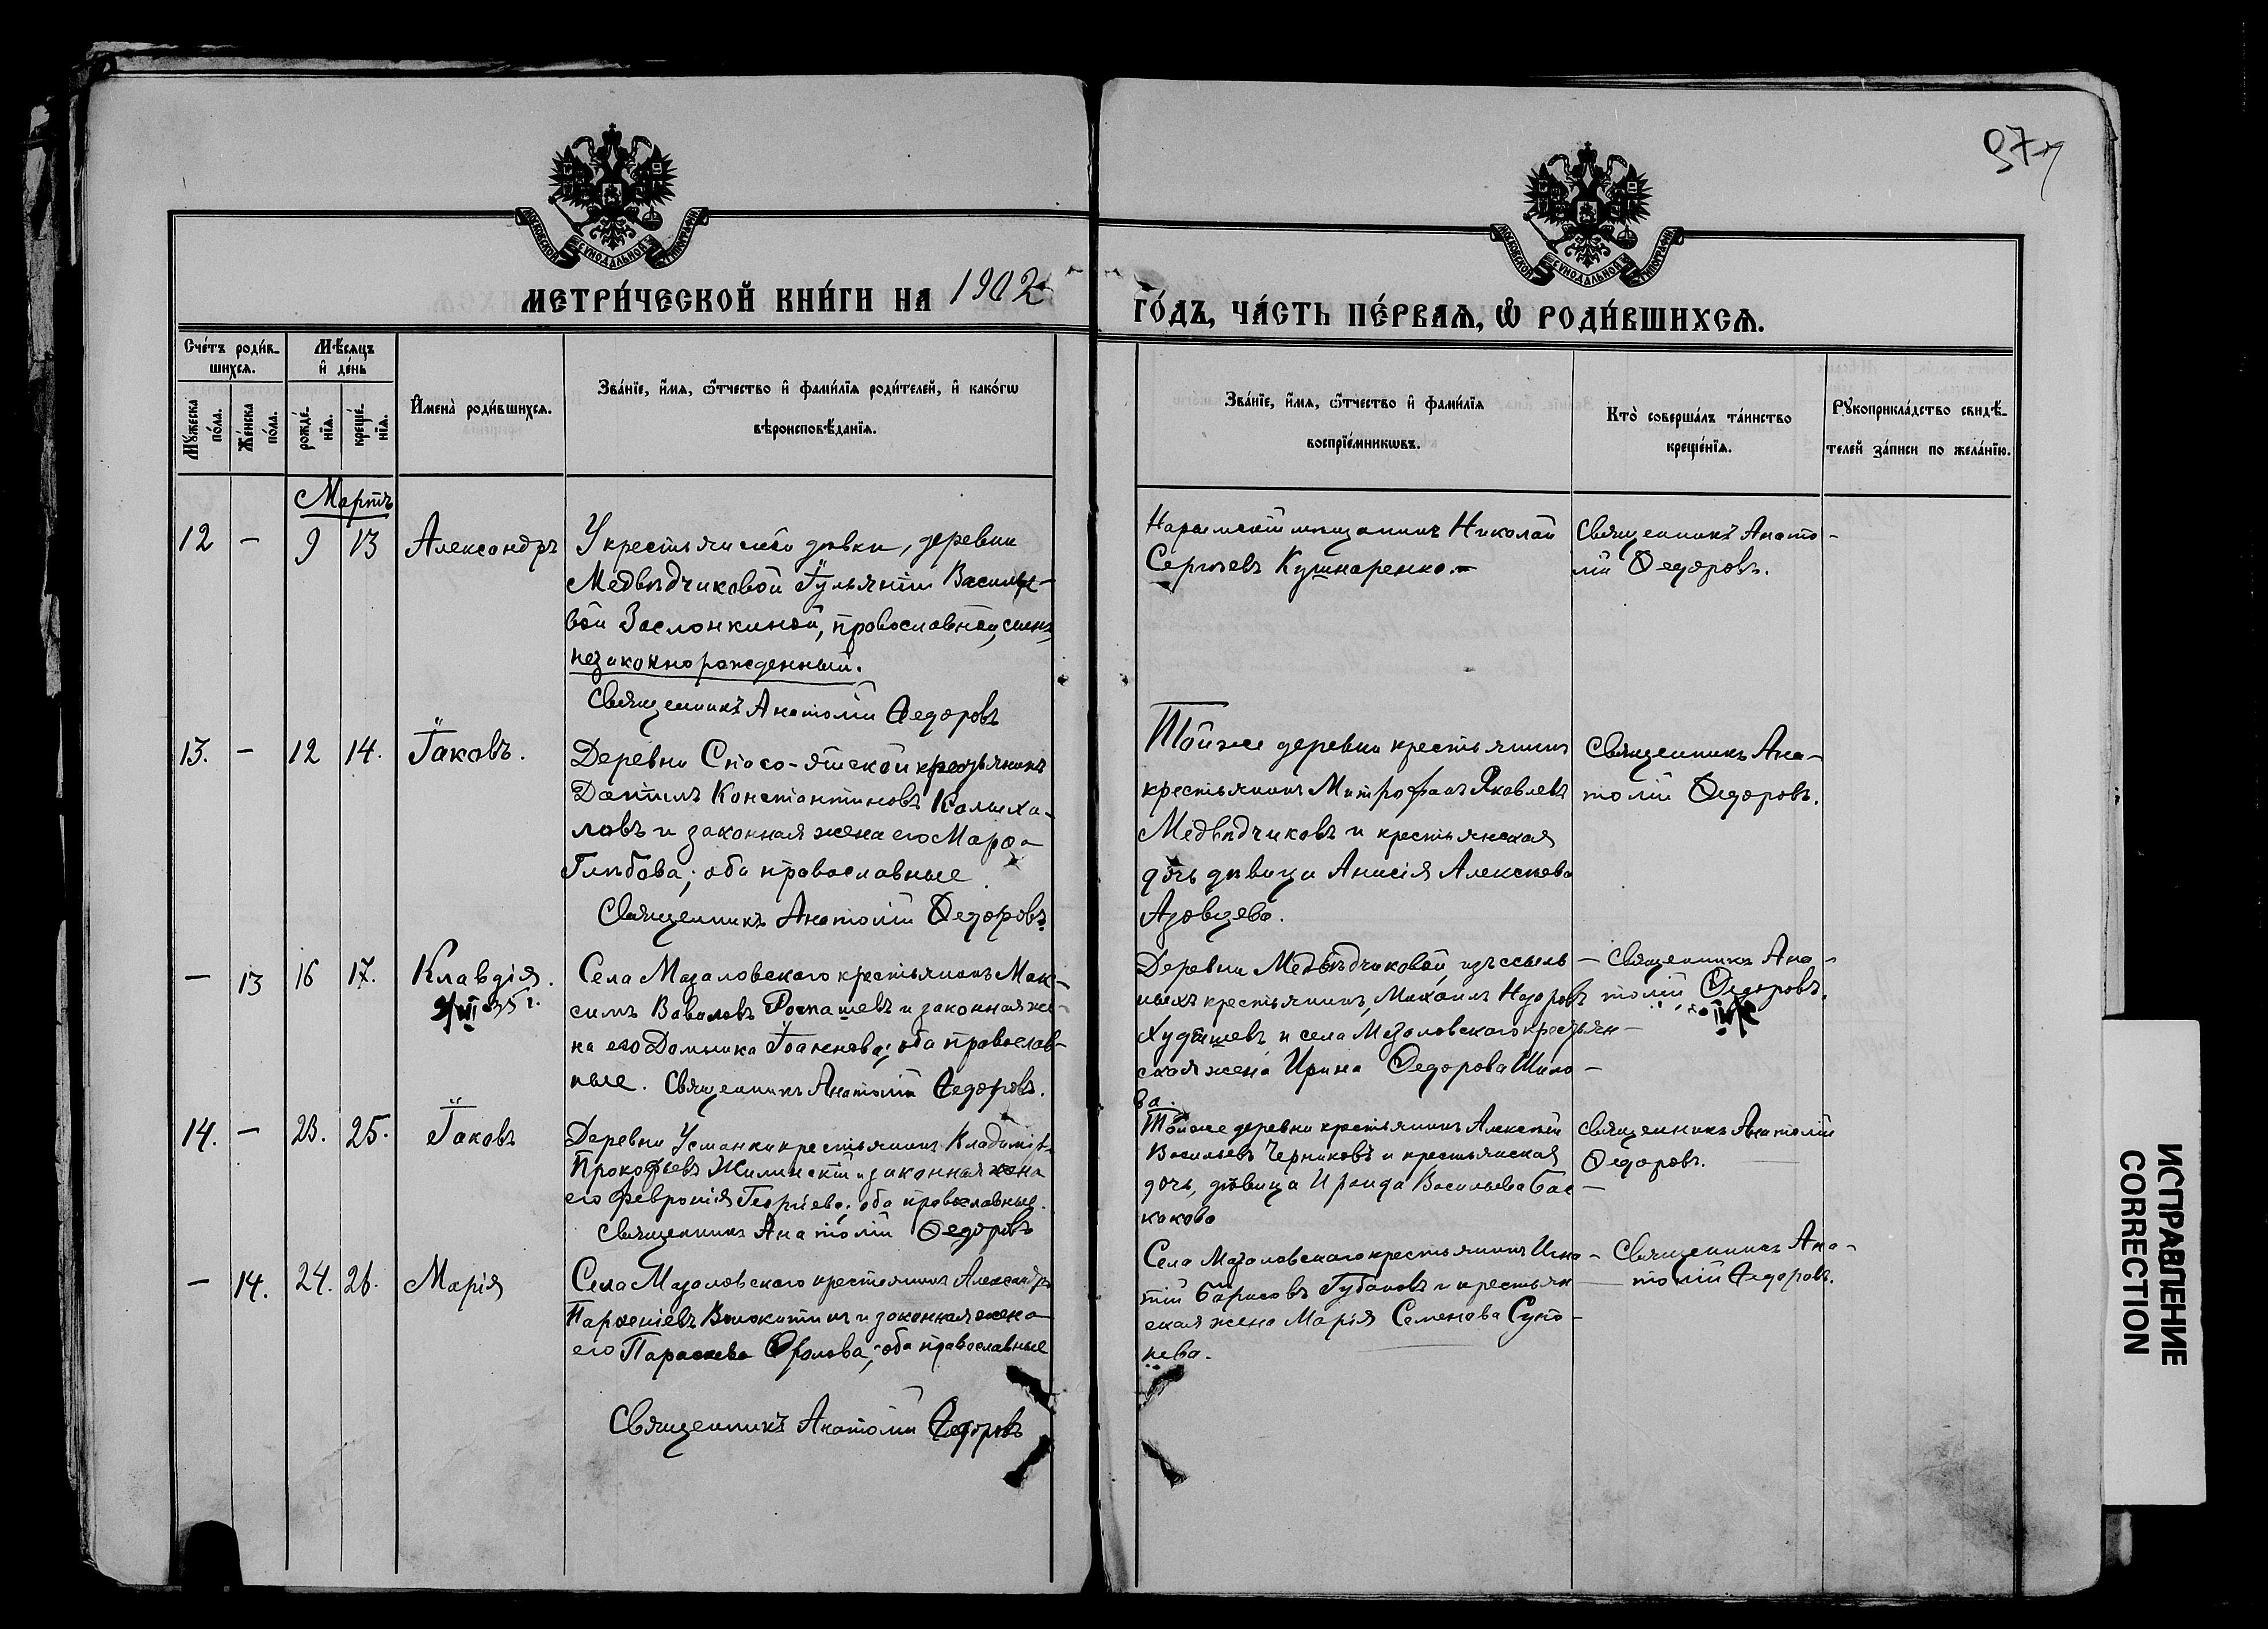 97
МОСКОВСКОЙ СУНОДАЛЬНОЙ ТИПОГРАФІИ
МОСКОВСКОЙ СУНОДАЛЬНОЙ ТИПОГРАФІИ
МЕТРИ́ЧЕСКОЙ КНИ́ГИ НА 1902
ГО́ДЪ, ЧА́СТЬ ПЕ́РВАѦ, Ѡ҆ РОДИ́ВШИХСѦ.
Сче́тъ роди́в-
шихсѧ.
Мѣ́сѧцъ
и҆ де́нь
Мꙋ́жеска
по́ла.
Же́нска
по́ла.
рожде́-
нїѧ.
креще́-
нїѧ.
И҆мена̀ роди́вшихсѧ.
Зва́нїе, и҆́мѧ, ѻ҆́тчество и҆ фами́лїѧ роди́телей, и҆ како́гѡ
вѣроисповѣ́данїѧ.
Зва́нїе, и҆́мѧ, ѻ҆́тчество и҆ фами́лїѧ
воспрїе́мникѡвъ.
Кто̀ соверша́лъ та́инство
креще́нїѧ.
Рꙋкоприкла́дство свидѣ́-
телей за́писи по жела́нїю.
Мартъ
12 — 9 13 Александръ
У крестьянской дѣвки, деревни
Медвѣдчиковой Іульяніи Василье-
вой Заслонкиной, православной, сынъ
незаконнорожденный.
Священникъ Анатолій Ѳедоровъ
Нарымскій мѣщанинъ Николай
Сергѣевъ Кушнаренко.
Священникъ Анато-
лій Ѳедоровъ.
13. — 12 14. Іаковъ.
Деревни Спасо-Яйской крестьянинъ
Даніилъ Константиновъ
ловъ и законная жена его Марѳа
Глѣбова; оба православные
Священникъ Анатолій Ѳедоровъ
Тойже деревни крестьянинъ
крестьянинъ Митрофанъ Яковлевъ
Медвѣдчиковъ и крестьянская
дочь дѣвица Анисія Алексѣева
Азовцева.
Священникъ Ана-
толій Ѳедоровъ.
— 13 16 17. Клавдія.
35 г.
Села Мазаловского крестьянинъ Мак-
симъ Вавиловъ и законная же-
на его Домника Іоаннова; оба православ-
ные. Священникъ Анатолій Ѳедоровъ.
Деревни Медвѣдчиковой, изъ ссыль-
ныхъ крестьянинъ, Михаилъ
и села Мазаловского крестьян-
ская жена Ирина Ѳедорова Шило-
ва.
Священникъ Ана-
толій Ѳедоровъ.
14. — 23. 25. Іаковъ
Деревни Усманки крестьянинъ Владиміръ
Прокофьевъ Жилинскій и законная жена
его Февронія Георгіева; оба православные.
Священникъ Анатолій Ѳедоровъ
Тойже деревни крестьянинъ Алексѣй
Васильевъ Черниковъ и крестьянская
дочь, дѣвица Ираида Васильева Бас-
какова
Священникъ Анатолій
Ѳедоровъ.
— 14. 24. 26. Марія
Села Мазаловского крестьянинъ Александръ
Парѳеніевъ Волокитинъ и законная жена
его Параскева Фролова; оба православные
Священникъ Анатолій Ѳедоровъ
Села Мазаловского крестьянинъ Игна-
тій Борисовъ Губановъ и крестьян-
ская жена Марія Семенова Супо-
нева.
Священникъ Ана-
толій Ѳедоровъ.
ИСПРАВЛЕНИЕ
CORRECTION